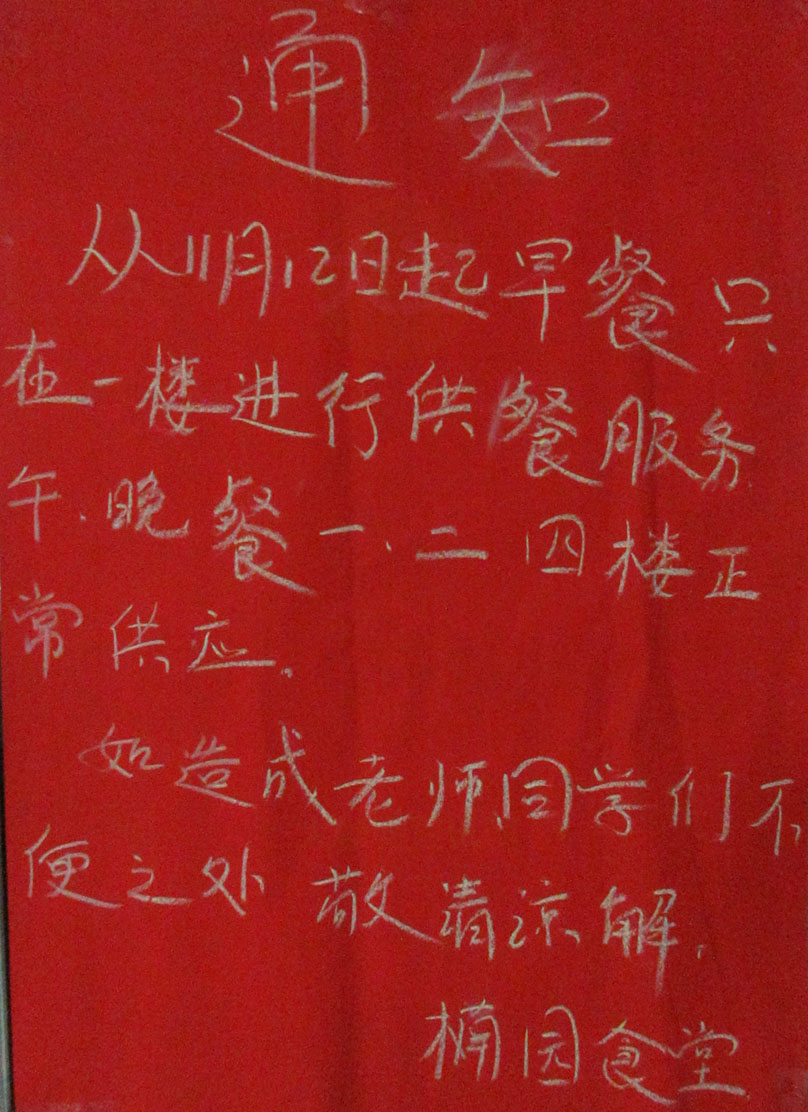 通知
从11月12日起早餐只
在一楼进行供餐服务
午、晚餐一、二四楼正
常供应。
如造成老师、同学们不
便之处 敬请谅解。
楠园食堂